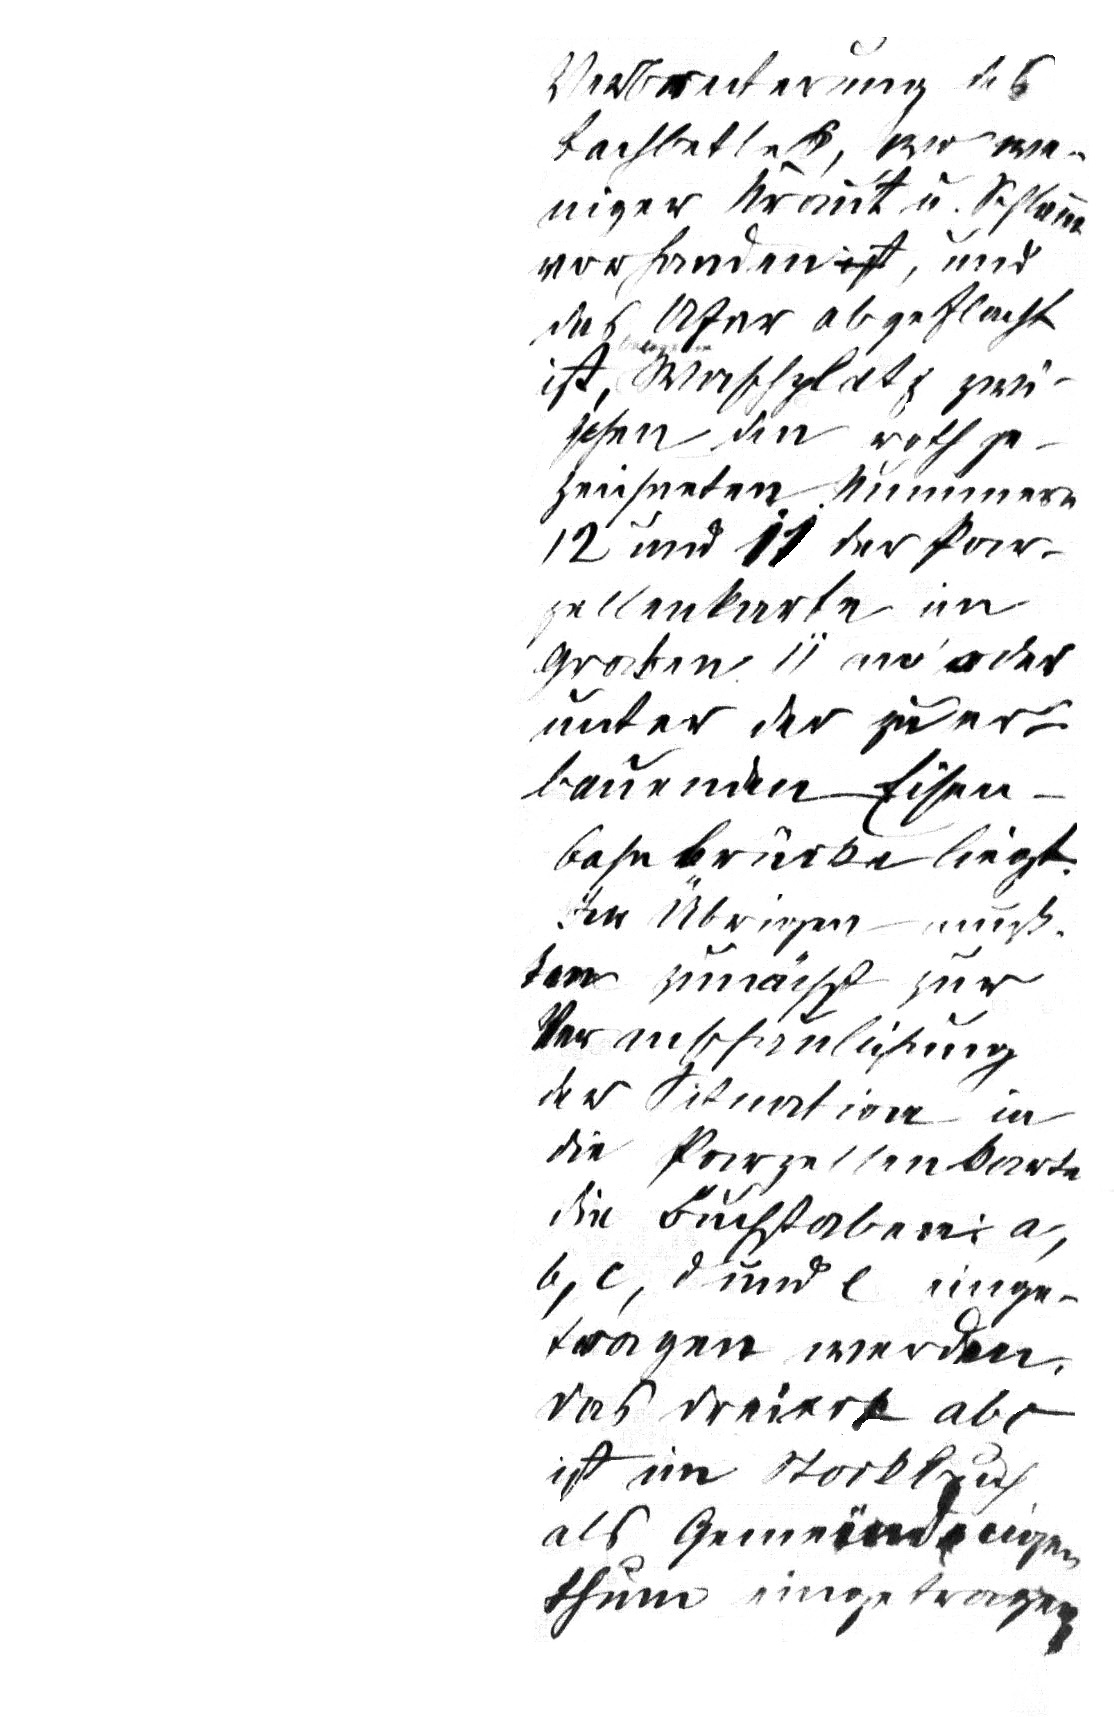 Verbreiterung des
Bachbettes, wo we-
niger Kraut u. Schlamm
vorhanden ist, und
das Ufer abgeflacht
ist, Waschplatz zwi-
schen den roth ge-
zeichneten Nummern
12 und 11 der Par-
zellenkarte im
Großen U oder
unter der zu er-
bauenden Eisen-
bahnbrücke liegt.
Im Übrigen muß-
ten zunächst zur
Veranschaulichung
der Situation in
die Parzellenkarte
die Buchstaben: a,
b, c, d und e einge-
tragen werden.
das dreieck abc
ist im Stockbuch
als Gemeindeeigen
thum eingetragen